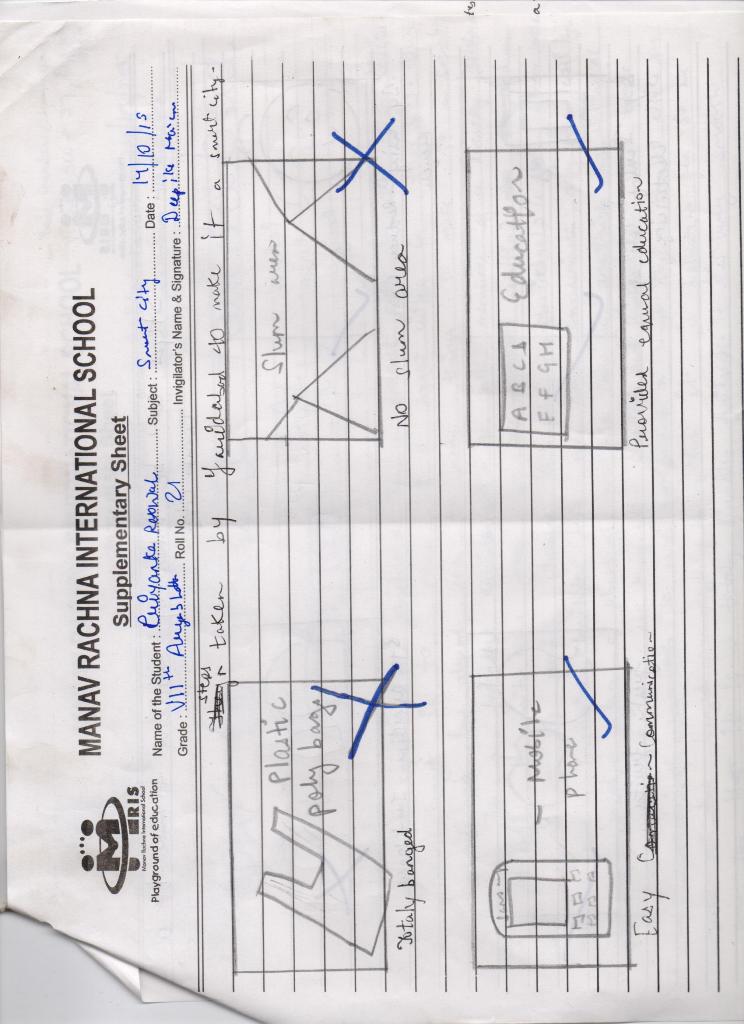 MANAV RACHNA INTERNATIONAL SCHOOL
Supplementary Sheet
MRIS
Manav Rachna International School
Playground of education
Name of the Student : Priyanka Subject : Smart City Date : 14/10/15
Grade : VIIth Roll No. 21 Invigilator's Name & Signature :
Steps taken by Faridabad to make it a smart city-
Plastic
poly bags
Slum area
Totaly banged
No slum area
- Mobile
Phone
A B C D
E F G H
Education
Easy Communication
Provided equal education